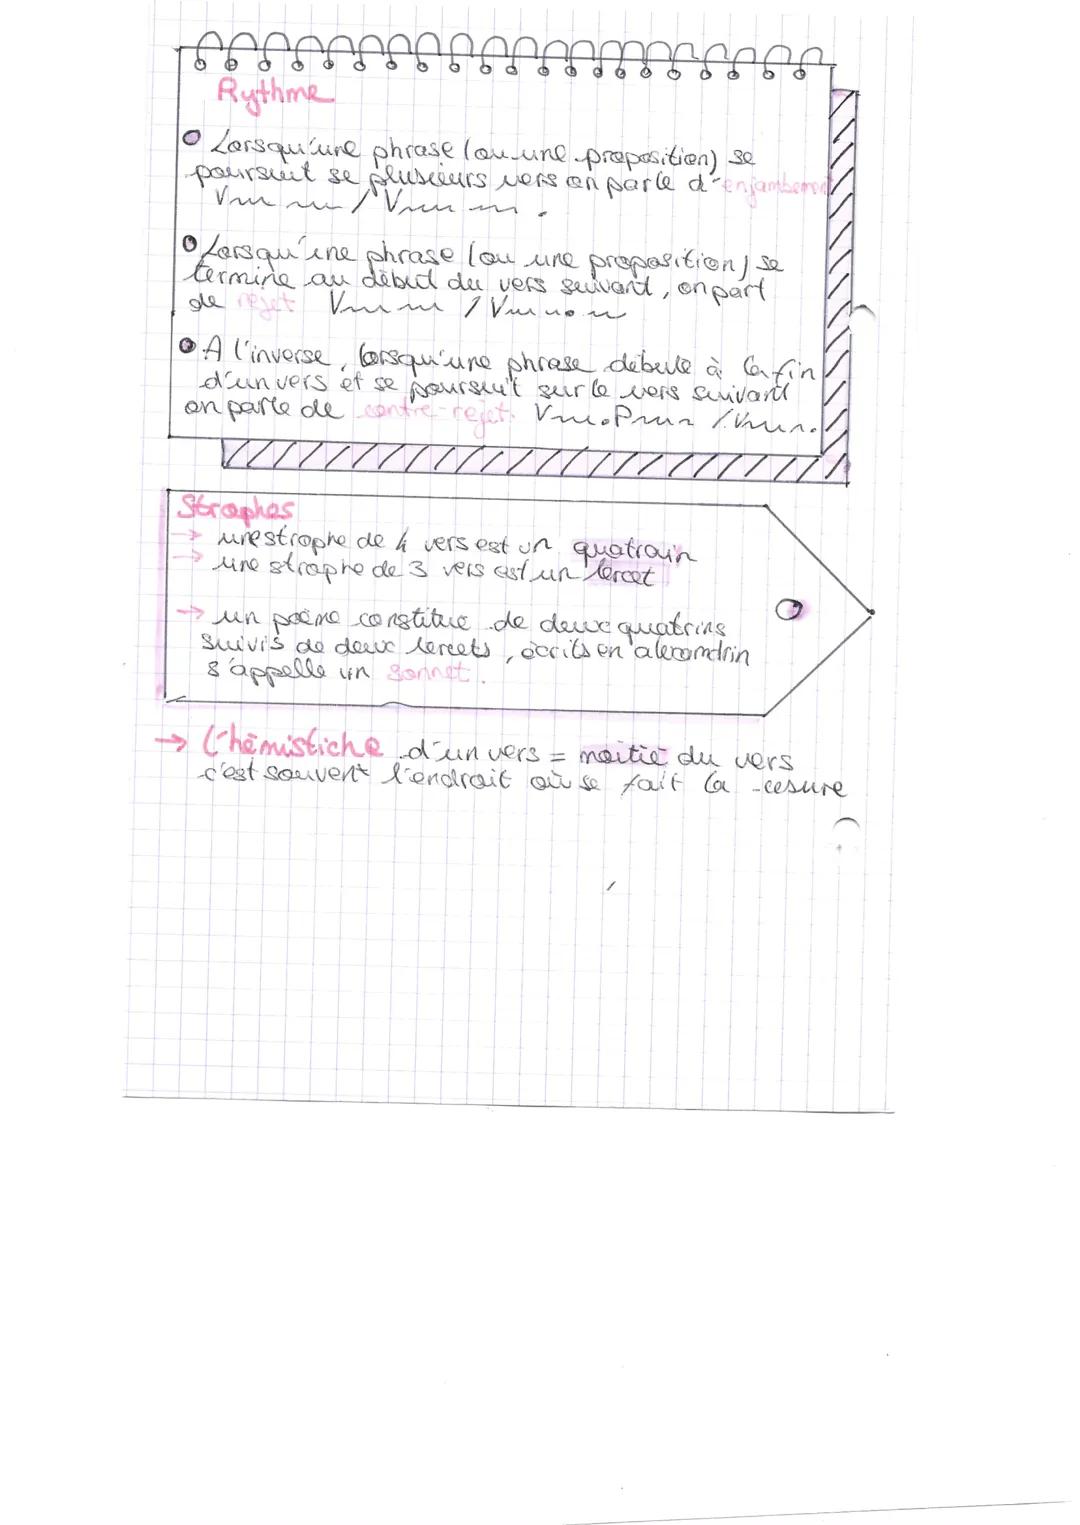 Rythme
Lorsqu'une phrase (ou une proposition) se
poursuit se plusieurs vers on parle d'enjambement
Lorsqu'une phrase (ou une proposition) se
termine au début du vers suivant, on part
de rejet
A l'inverse, lorsqu'une phrase débute à la fin
d'un vers et se poursuit sur le vers suivant
on parle de contre-rejet.
Strophes
→ une strophe de 4 vers est un quatrain
→ une strophe de 3 vers est un tercet
→ un poème constitué de deux quatrins
suivis de deux tercets, écrits en alexandrin
s'appelle un sonnet.
→ L'hémistiche d'un vers = moitié du vers
c'est souvent l'endroit où se fait la cesure